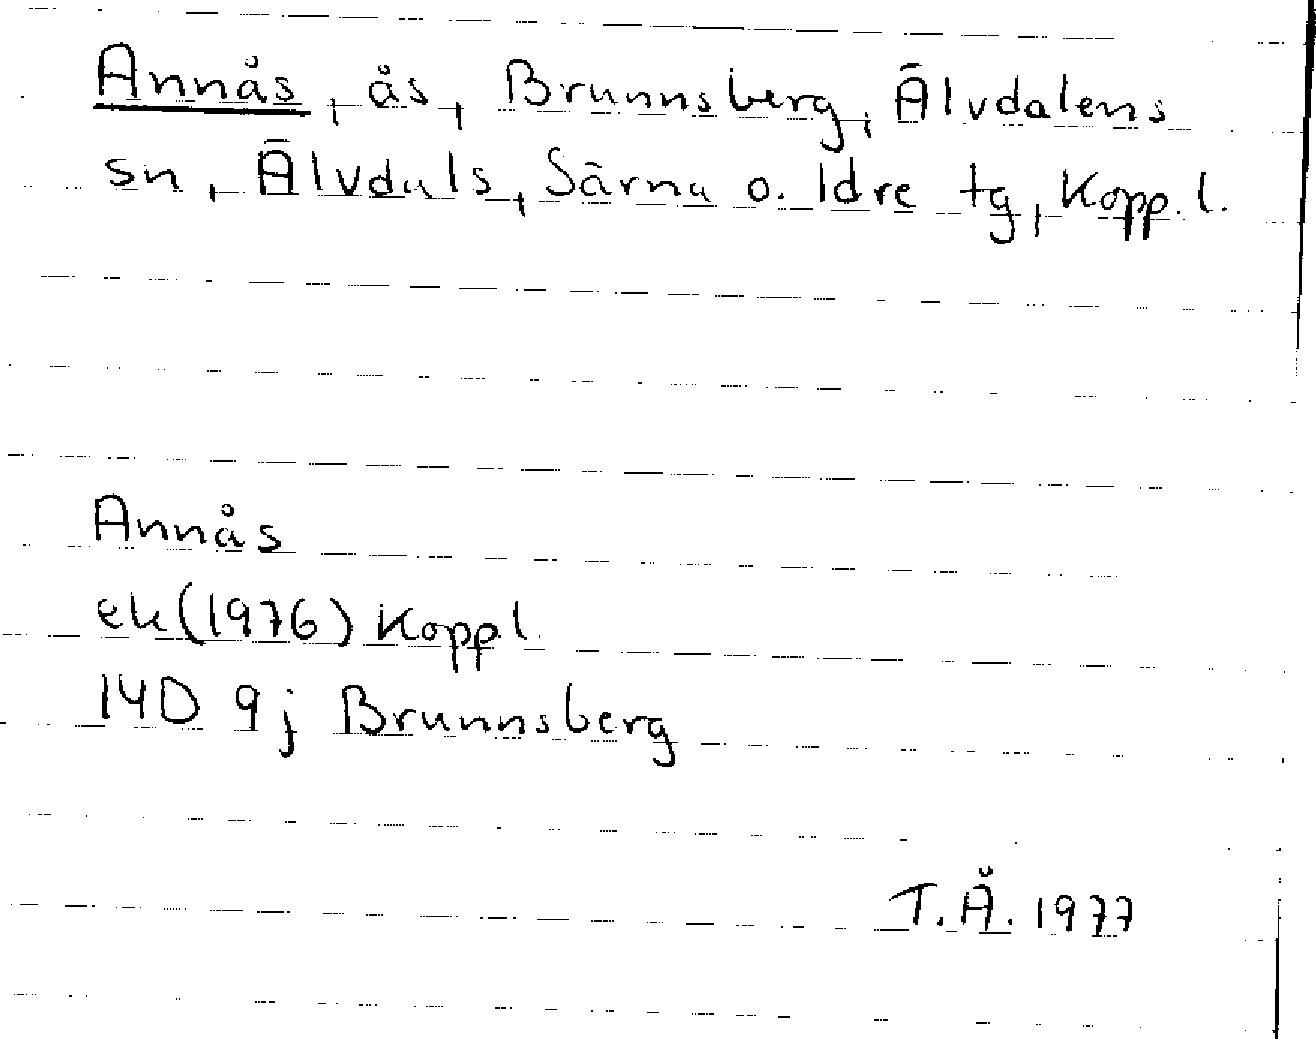 Annås, ås, Brunnsberg, Älvdalens
sn, Älvdals, Särna o. Idre tg, Kopp. l.
Annås
ek (1976) Kopp l.
14D 9j Brunnsberg
T.Å. 1977